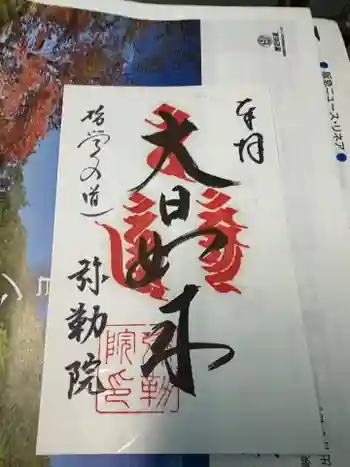 奉拝
大日如来
哲学の道
弥勒院
弥勒
院印
阪急ニュース・リネア